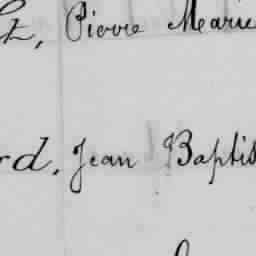 t, Pierre Marie
rd, Jean Baptis